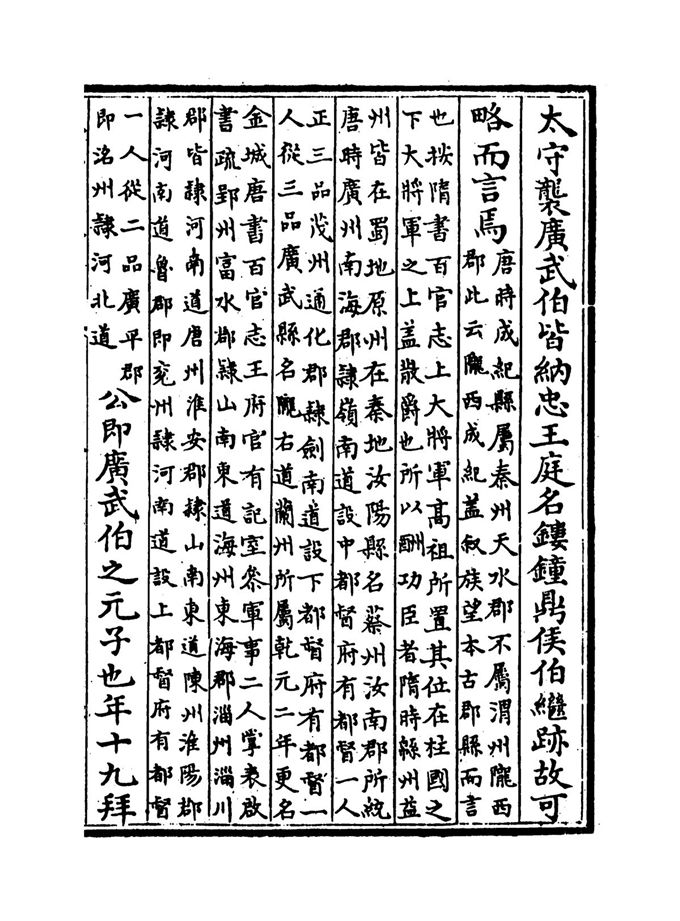 太守襲廣武伯皆納忠王庭名鏤鐘鼎侯伯繼跡故可
略而言焉
唐時成紀縣屬秦州天水郡不屬渭州隴西
郡此云隴西成紀盖叙族望本古郡縣而言
也按隋書百官志上大將軍高祖所置其位在柱國之
下大將軍之上盖散爵也所以酬功臣者隋時緜州益
州皆在蜀地原州在秦地汝陽縣名蔡州汝南郡所統
唐時廣州南海郡隷嶺南道設中都督府有都督一人
正三品茂州通化郡隷劍南道設下都督府有都督一
人從三品廣武縣名隴右道蘭州所屬乾元二年更名
金城唐書百官志王府官有記室叅軍事二人掌表啟
書疏郢州富水郡隷山南東道海州東海郡淄州淄川
郡皆隷河南道唐州淮安郡隷山南東道陳州淮陽郡
隷河南道魯郡即兖州隷河南道設上都督府有都督
一人從二品廣平郡
即洺州隷河北道
公即廣武伯之元子也年十九拜